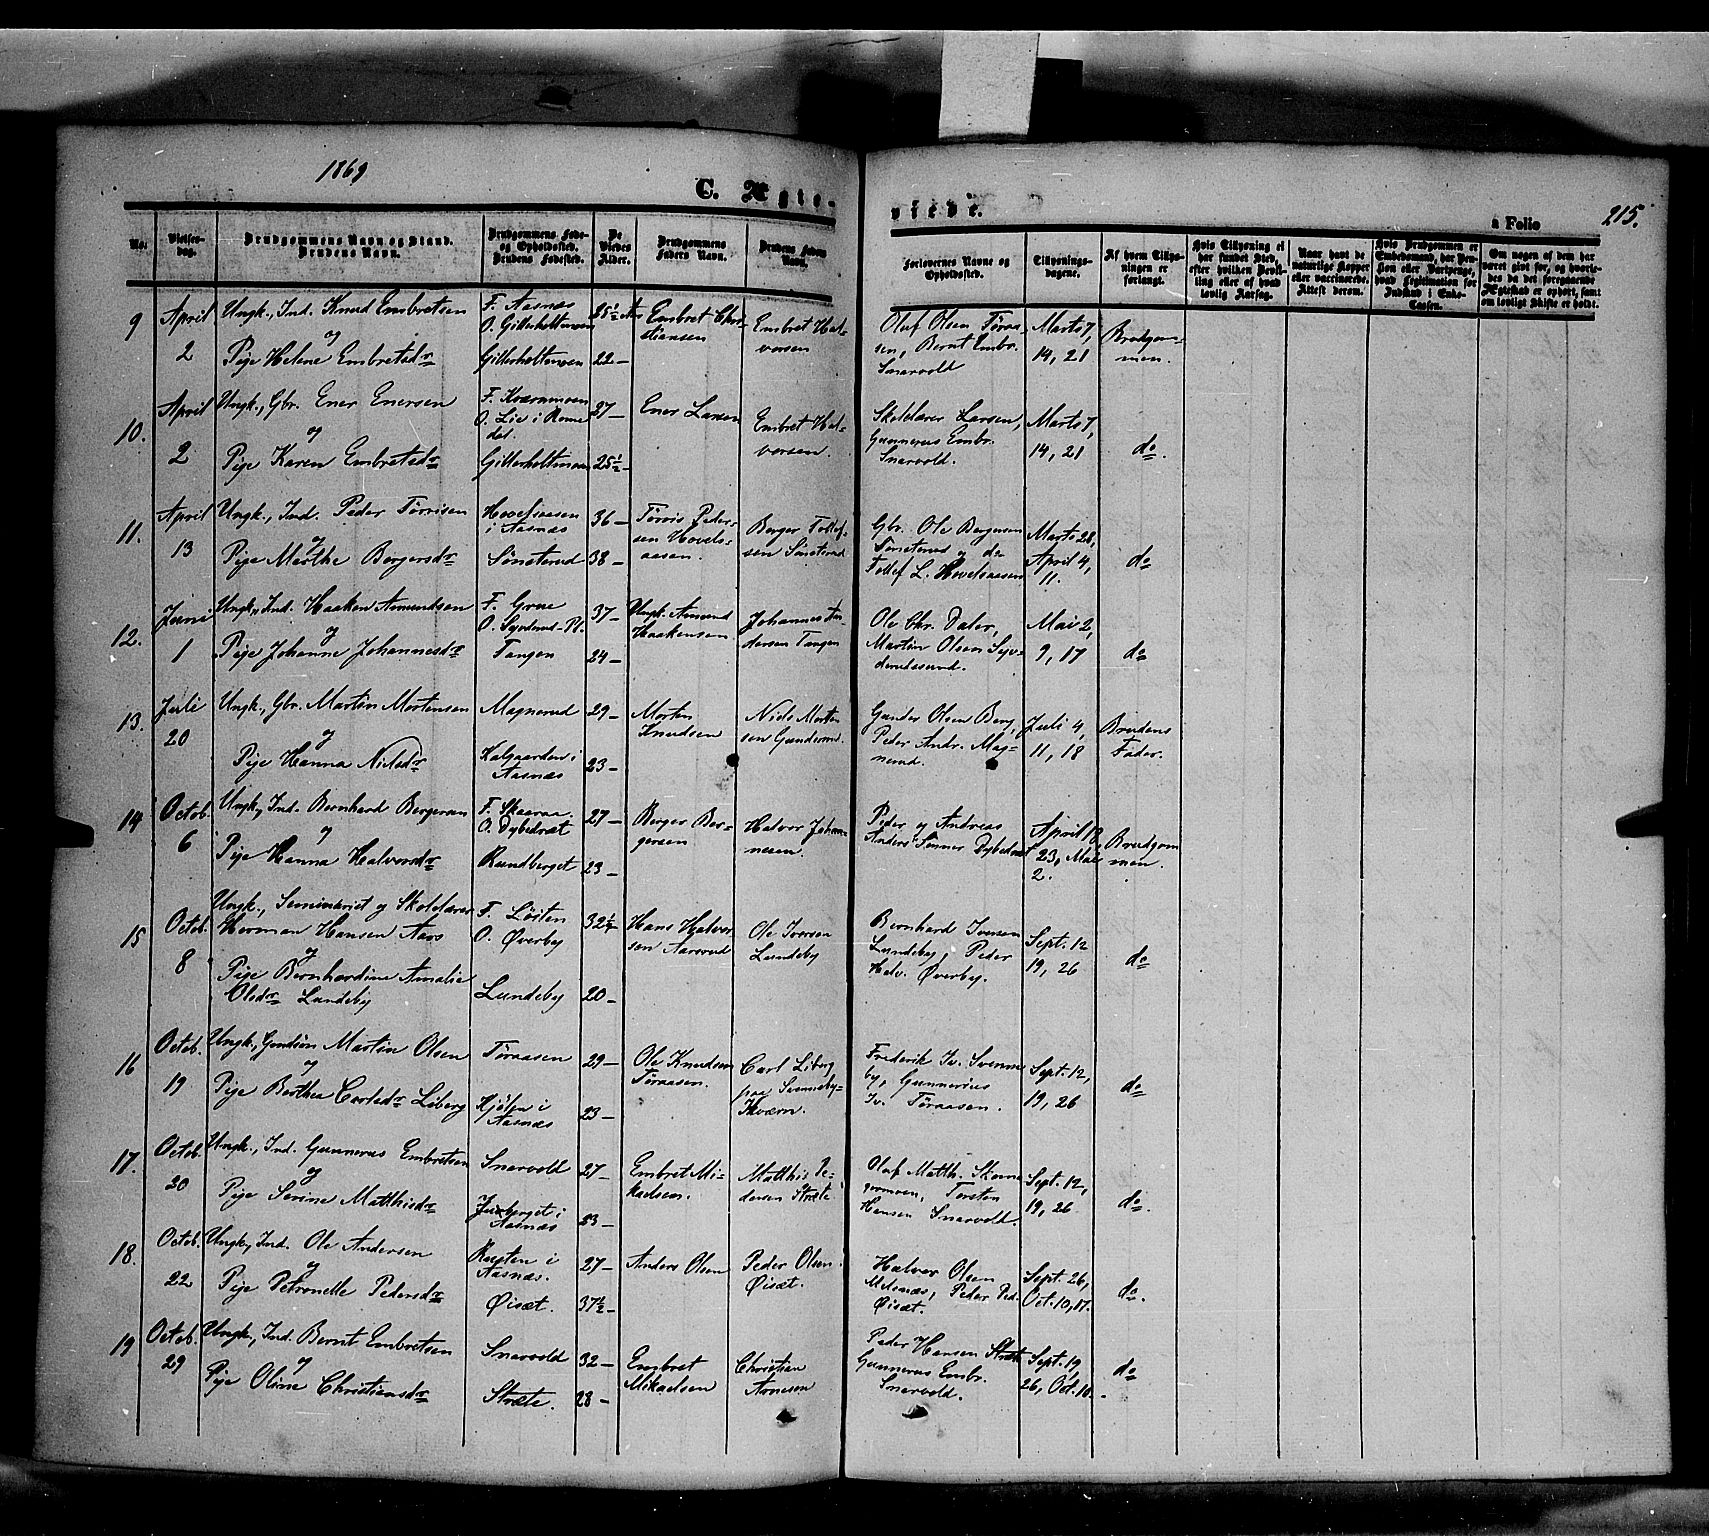 1869
C. Ægte-
viede.
a Folio
215.
No.
Vielses-
dag.
Brudgommens Navn og Stand.
Brudens Navn.
Brudgommens Føde-
og Opholdssted.
Brudens Fødested.
De
Viedes
Alder.
Brudgommens
Faders Navn.
Brudens Faders
Navn.
Forlovernes Navne og
Opholdssted.
Tillysnings-
dagene.
Af hvem Tillys-
ningen er
forlangt.
Hvis Tillysning ei
har fundet Sted,
efter hvilken Bevil-
ling eller af hvad
lovlig Aarsag.
Naar havt de
naturlige Kopper
eller vaccinerede.
Attest derom.
Hvis Brudgommen er
Embedsmand, har Pen-
sion eller Vartpenge,
hvad Legitimation for
Indskud i Enke-
Cassen.
Om nogen af dem har
været gift før, og hvorle-
des da det foregaaende
Ægteskab er ophørt, samt
om lovligt Skifte er holdt.
9
April
2
Ungk., Ind. Knud Embretsen
og
Pige Helene Embretsdr
F. Aasnæs
O. Gitterholtmoen
Gitterholtmoen
25½ Ar
22 -
Embret Chri-
stiansen
Embret Hal-
vorsen
Oluf Olsen Töraa-
sen, Bernt Embr.
Snarvold
Marts 7,
14, 21
Brudgom-
men.
10.
April
2
Ungk., Gbr. Ener Enersen
og
Pige Karen Embretsdr
F. Kværnmoen
O. Lie i Rome
dal.
Gitterholtmoen
27 -
25½ -
Ener Larsen
Embret Hal-
vorsen.
Skolelærer Larsen,
Gunnerus Embr.
Snarvold.
Marts 7,
14, 21
do.
11.
April
13
Ungk., Ind. Peder Törrisen
og
Pige Marthe Bergersdr
Hovelsaasen
i Aasnæs
Sönsterud
36 -
38 -
Törris Peder-
sen Hovels-
aasen.
Berger Tollef-
sen Sönsterud
Gbr. Ole Bergersen
Sönsterud og do
Tollef L. Hovelsaasen
Marts 28,
April 4,
11.
do
12.
Juni
1
Ungk., Ind. Haaken Amundsen
og
Pige Johanne Johannesdr
F. Grue
O. Syverud-Pl.
Tangen
37 -
24 -
Ungk. Amund
Haakensen
Johannes An-
dersen Tangen
Ole Chr. Daler,
Martin Olsen Syv-
derudssund.
Mai 2,
9, 17
do
13.
Juli
20
Ungk., Gbr. Martin Mortensen
og
Pige Hanna Nielsdr
Magnerud
Kalgaarden i
Aasnæs
29 -
23 -
Morten
Knudsen
Niels Morten
sen Gunderud.
Gunder Olsen Berg,
Peder Andr. Mag-
nerud.
Juli 4,
11, 18
Brudens
Fader.
14
Octob.
6
Ungk, Ind. Bernhard Bergersen
og
Pige Hanna Halvorsdr
F. Skaaraa.
O. Dybedræt
Rundberget
27 -
23 -
Berger Ber-
gersen
Halvor Johan-
nesen.
Peder og Andreas
Anders Sönner Dybedræt
April 18,
23, Mai
2.
Brudgom
men.
15
Octob.
8
Ungk., Seminarist og Skolelærer
Herman Hansen Aars
og
Pige Bernhardine Amalie
Olsdr Lundeby
F. Löiten
O. Øverby
Lundeby
32½
20 -
Hans Halvor
sen Aarsrud
Ole Iversen
Lundeby
Bernhard Iversen
Lundeby, Peder
Halv. Øverby.
Sept. 12
19, 26
do
16
Octob.
19
Ungk., Gaardsön Martin Olsen
og
Pige Berthea Carlsdr Liberg
Töraasen
Kjölen i
Aasnæs
29 -
23 -
Ole Knudsen
Töraasen.
Carl Liberg
paa Svenneby-
Kværn.
Frederik Iv. Svenne
by, Gunnerius
Iv. Töraasen.
Sept. 12,
19, 26
do
17.
Octob.
20
Ungk., Ind. Gunnerus Embretsen
og
Pige Serine Matthisdr
Snarvold
Juxberget i
Aasnæs
27 -
23 -
Embret Mi-
kaelsen.
Matthis Pe-
dersen Stræte
Oluf Matth.
Torsten
Hansen Snarvold.
Sept. 12,
19, 26
do.
18.
Octob.
22
Ungk., Ind. Ole Andersen
og
Pige Petronelle Pedersdr
Rusten i
Aasnæs.
Øisæt.
27 -
37½ -
Anders Olsen
Peder Olsen
Øisæt.
Halvor Olsen
Melsnæs, Peder Ped.
Øisæt.
Sept. 26,
Oct. 10, 17.
do.
19
Octob.
29
Ungk., Ind. Bernt Embretsen
og
Pige Oline Christiansdr
Snarvold
Stræte.
32 -
28 -
Embret
Mikaelsen
Christian
Arnesen
Peder Hansen Stræte
Gunnerus Embr.
Snarvold.
Sept. 19,
26, Oct. 10.
do